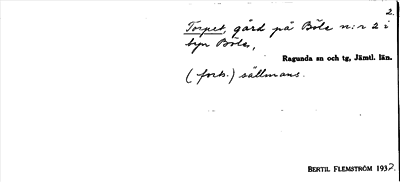 2.
Torpet, gård på Böle n:r 2 i
byn Böle,
Ragunda sn och tg, Jämtl. län.
(forts.) sällmans.
BERTIL FLEMSTRÖM 1932.